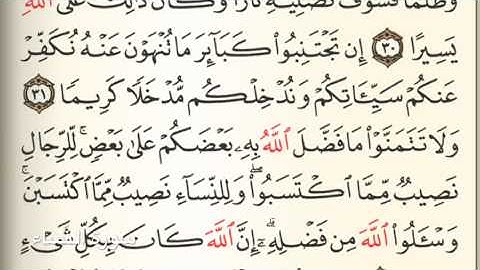 وَظُلْمًا فَسَوْفَ نُصْلِيهِ نَارًا وَكَانَ ذَٰلِكَ عَلَى ٱللَّهِ
يَسِيرًا ٣٠ إِن تَجْتَنِبُوا۟ كَبَآئِرَ مَا تُنْهَوْنَ عَنْهُ نُكَفِّرْ
عَنكُمْ سَيِّـَٔاتِكُمْ وَنُدْخِلْكُم مُّدْخَلًا كَرِيمًا ٣١
وَلَا تَتَمَنَّوْا۟ مَا فَضَّلَ ٱللَّهُ بِهِۦ بَعْضَكُمْ عَلَىٰ بَعْضٍ ۚ لِّلرِّجَالِ
نَصِيبٌ مِّمَّا ٱكْتَسَبُوا۟ ۖ وَلِلنِّسَآءِ نَصِيبٌ مِّمَّا ٱكْتَسَبْنَ ۚ
وَسْـَٔلُوا۟ ٱللَّهَ مِن فَضْلِهِۦٓ ۗ إِنَّ ٱللَّهَ كَانَ بِكُلِّ شَىْءٍ
سورة النساء